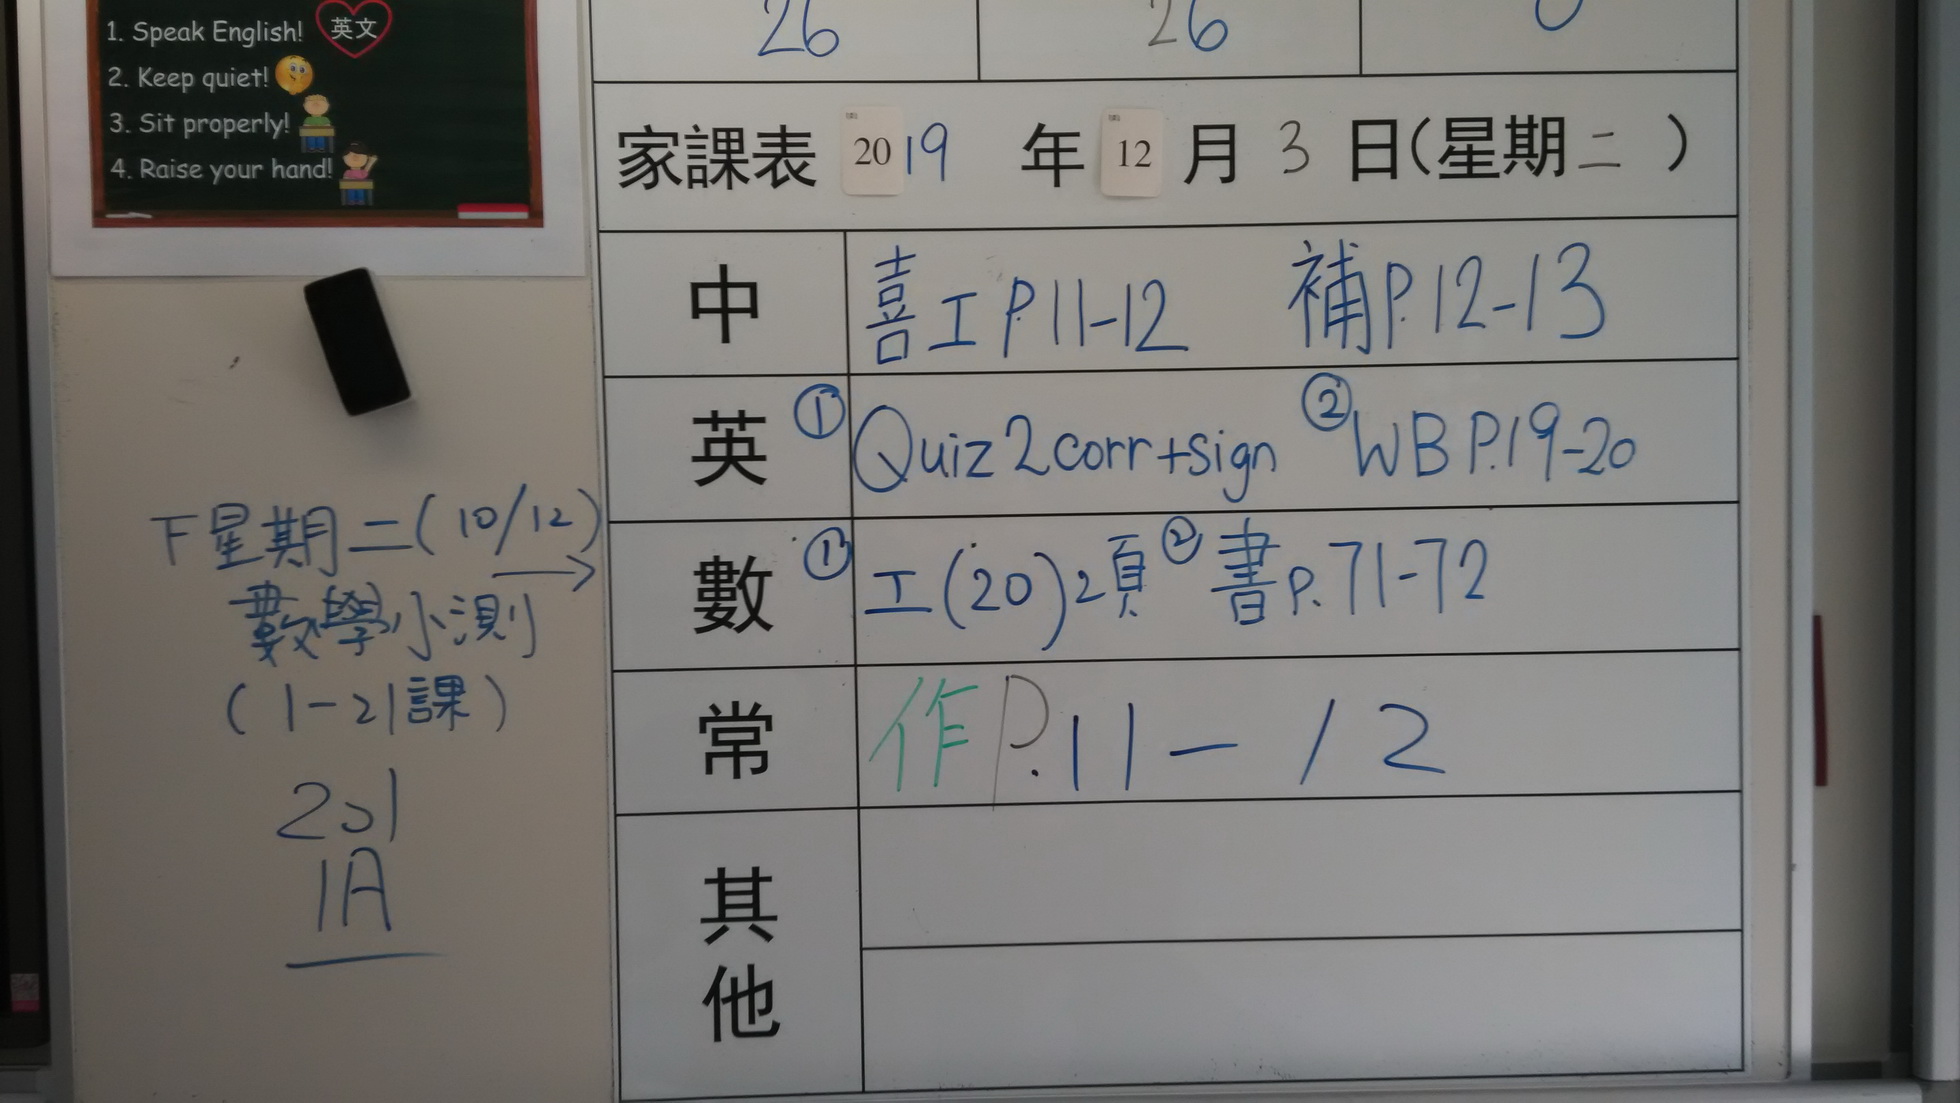 1. Speak English! 英文
2. Keep quiet!
3. Sit properly!
4. Raise your hand!
26 26
家課表 2019 年 12 月 3 日(星期二 )
中 喜工P.11-12 補P.12-13
英 ①Quiz 2 corr+sign ②WB P.19-20
數 ①工(20)2頁 ②書P.71-72
常 作P.11-12
其他
下星期二(10/12)
數學小測
(1-21課)
201
1A